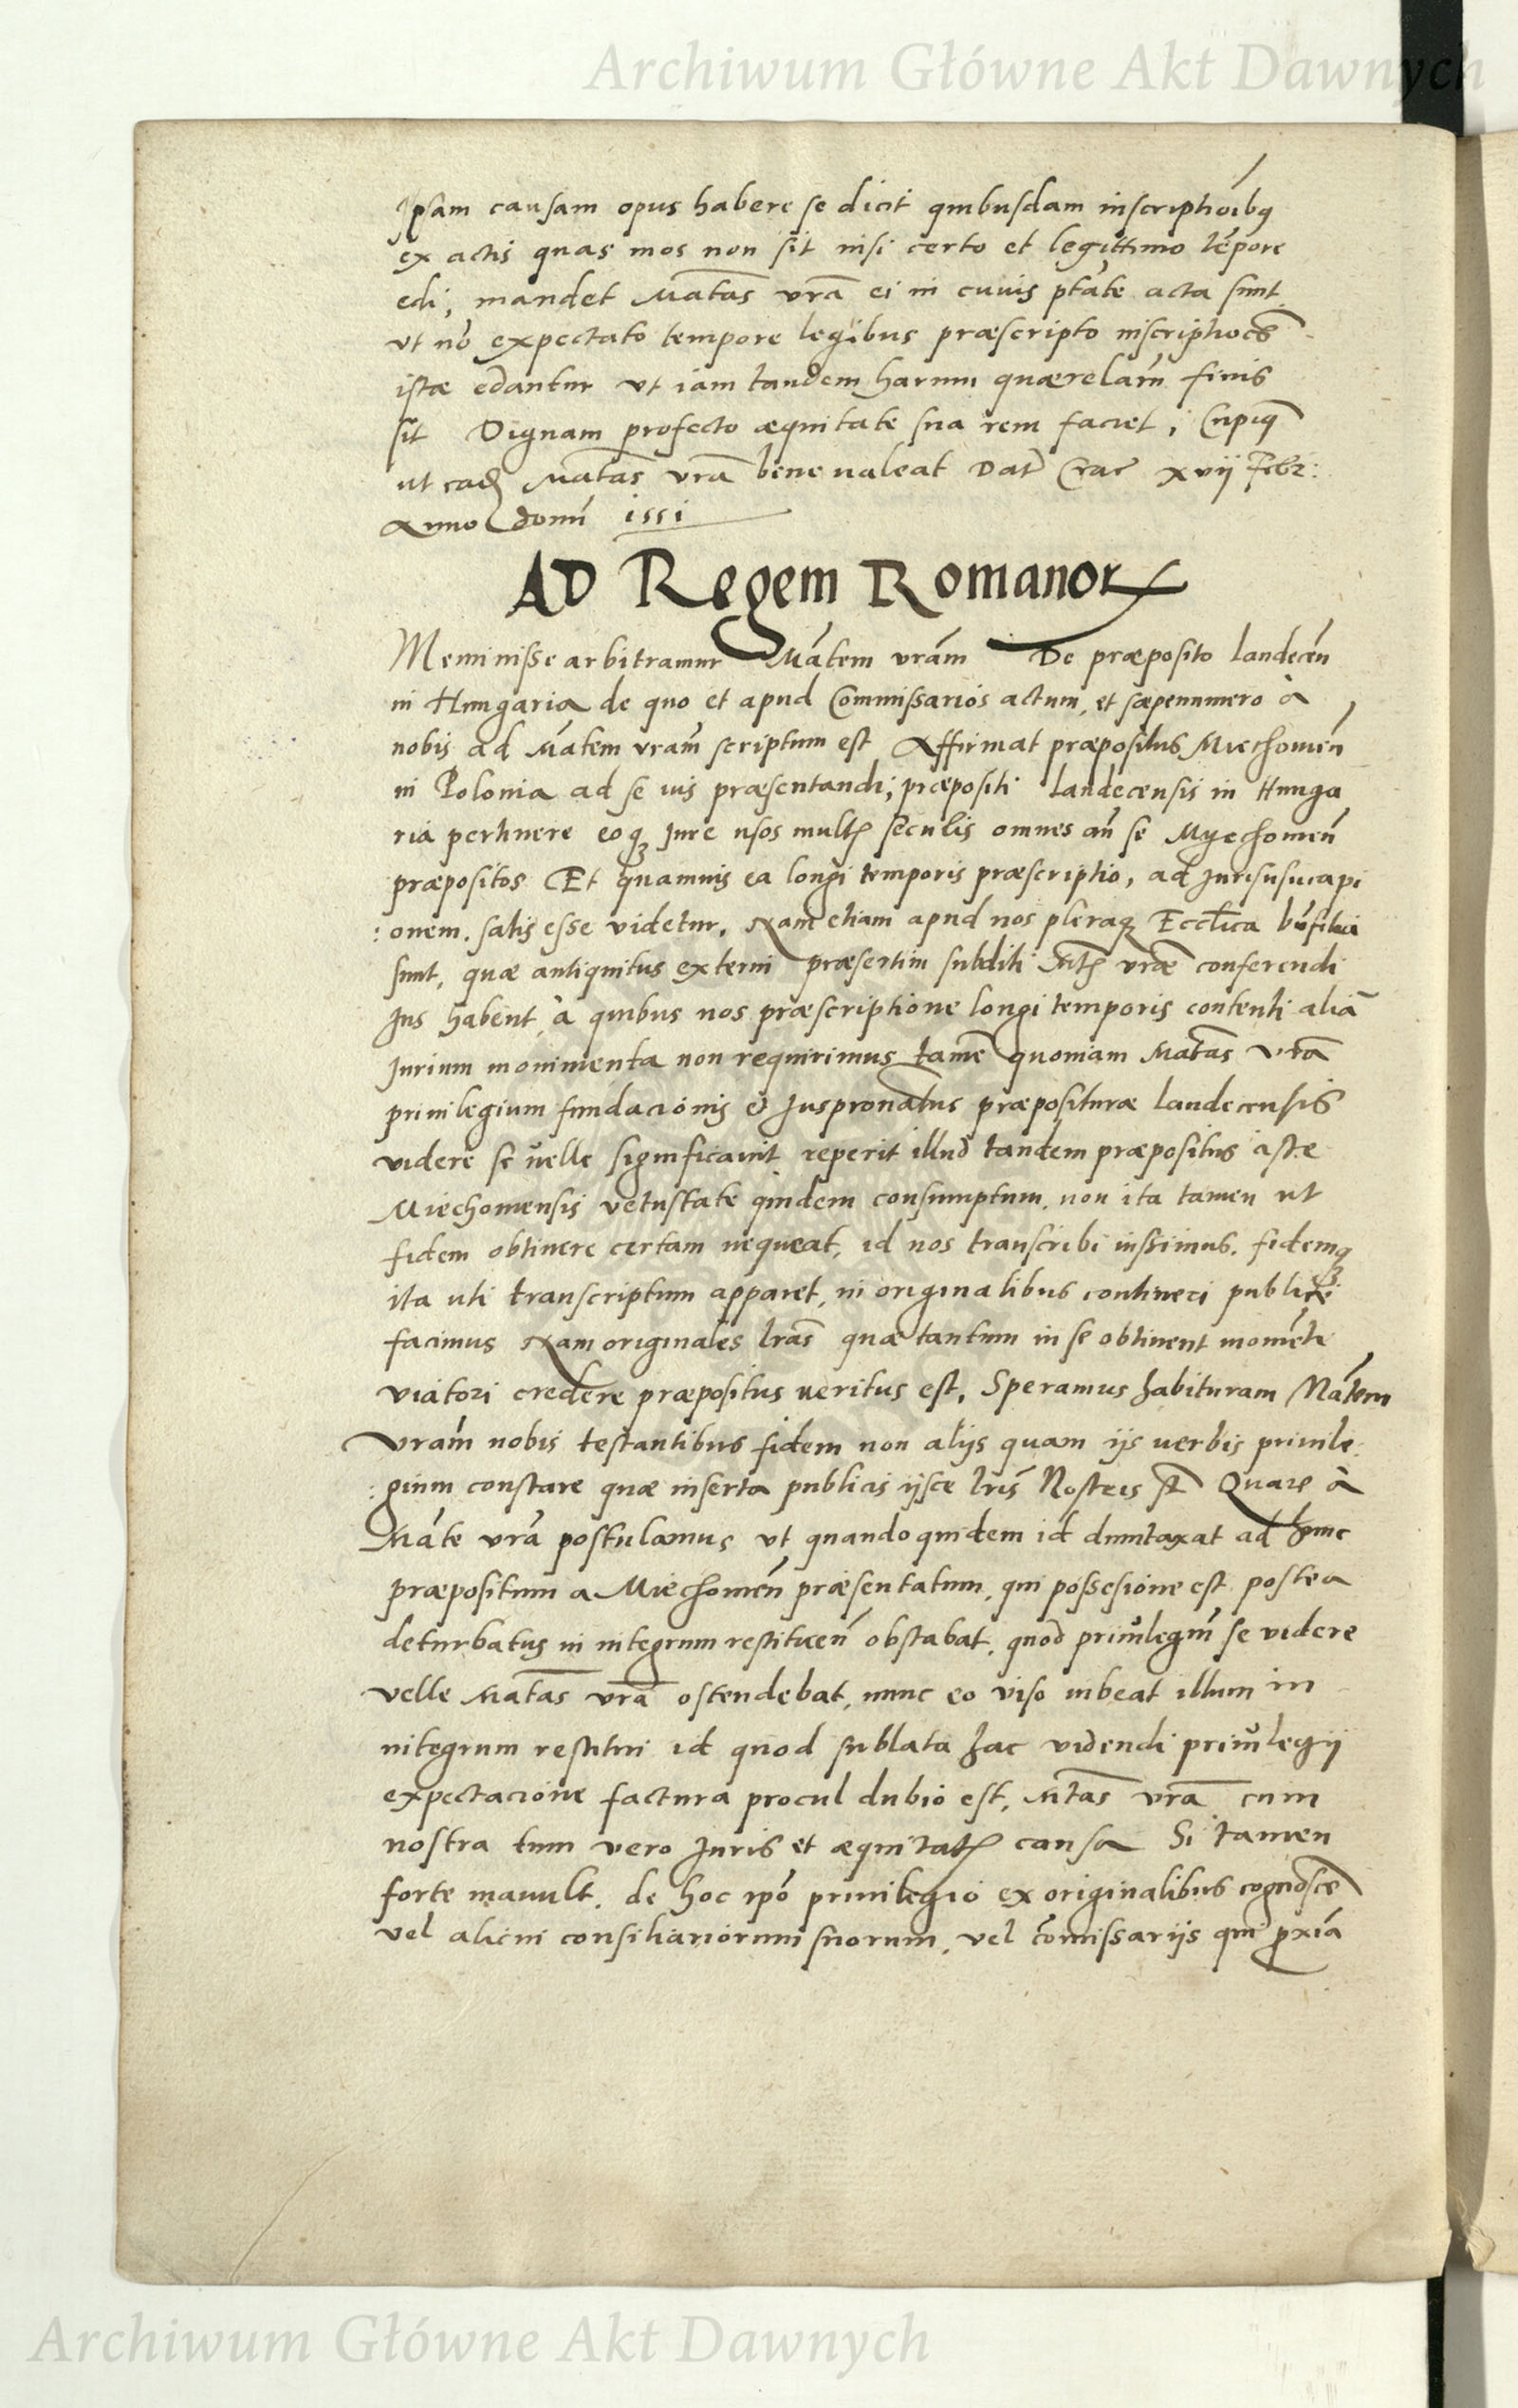 Archiwum Główne Akt Dawnych
Ipsam causam opus habere se dicit quibusdam inscriptioibq
ex actis quas mos non sit nisi certo et legittimo tēpore
edi, mandet Mattas vrā ei in cuius ptāte acta sunt
ut nō expectato tempore legibus præscripto inscriptioēs
istæ edantur ut iam tandem harum quærelarū finis
sit Dignam profecto æquitate sua rem faciet, Cupiq
ut Mattas vrā bene valeat Dat Crac xvij Febr:
Anno domī 1551
AD Regem Romanor
Meminisse arbitramur Mātem vrām De præposito landecēn
in Hungaria de quo et apud Commissarios actum, et sæpenumero à
nobis ad Mātem vrām scriptum est Affirmat præpositus Miechoviēn
in Polonia ad se ius præsentandi, præpositi landecensis in Hunga
ria pertinere eoq Jure usos mult seculis omnes an se Myechoviēn
præpositos Et quamvis ea longi temporis præscriptio, ad Jurisusucapi
:onem. satis esse videtur. Nam etiam apud nos pleraq Ecctica bnfitia
sunt, quæ antiquitus externi præsertim subditi Mt vræ conferendi
Jus habent, à quibus nos præscriptione longi temporis contenti aliā
Jurium monimenta non requirimus tamē quoniam Mattas vrā
privilegium fundacionis et Juspronatus præposituræ landecensis
videre se velle significavit reperit illud tandem præpositus iste
Miechoviensis vetustate quidem consumptum. non ita tamen ut
fidem obtinere certam nequeat, id nos transcribi iussimus. fidemq
ita uti transcriptum apparet, in originalibus contineri publice
facimus Nam originales lrās quæ tantum in se obtinent momēti
viatori credere præpositus veritus est. Speramus habituram Mātem
vrām nobis testantibus fidem non alijs quam ijs verbis privile:
:gium constare quæ inserta publicis ijsce lris Nostris st Quare à
Māte vrā postulamus ut quandoquidem id duntaxat ad hunc
præpositum a Miechoviēn præsentatum, qui possesione est postea
deturbatus in integrum restituen obstabat, quod privilegiū se videre
velle Mattas vrā ostendebat, nunc eo viso iubeat illum in
integrum restitui id quod sublata hac videndi privilegij
expectacione factura procul dubio est, Mtas vrā cum
nostra tum vero Juris et æquitat causa Si tamen
forte mavult. de hoc ipō privilegio ex originalibus cognoscē
vel alicui consiliariorum suorum, vel cōmissarijs qui proxiā
Archiwum Główne Akt Dawnych